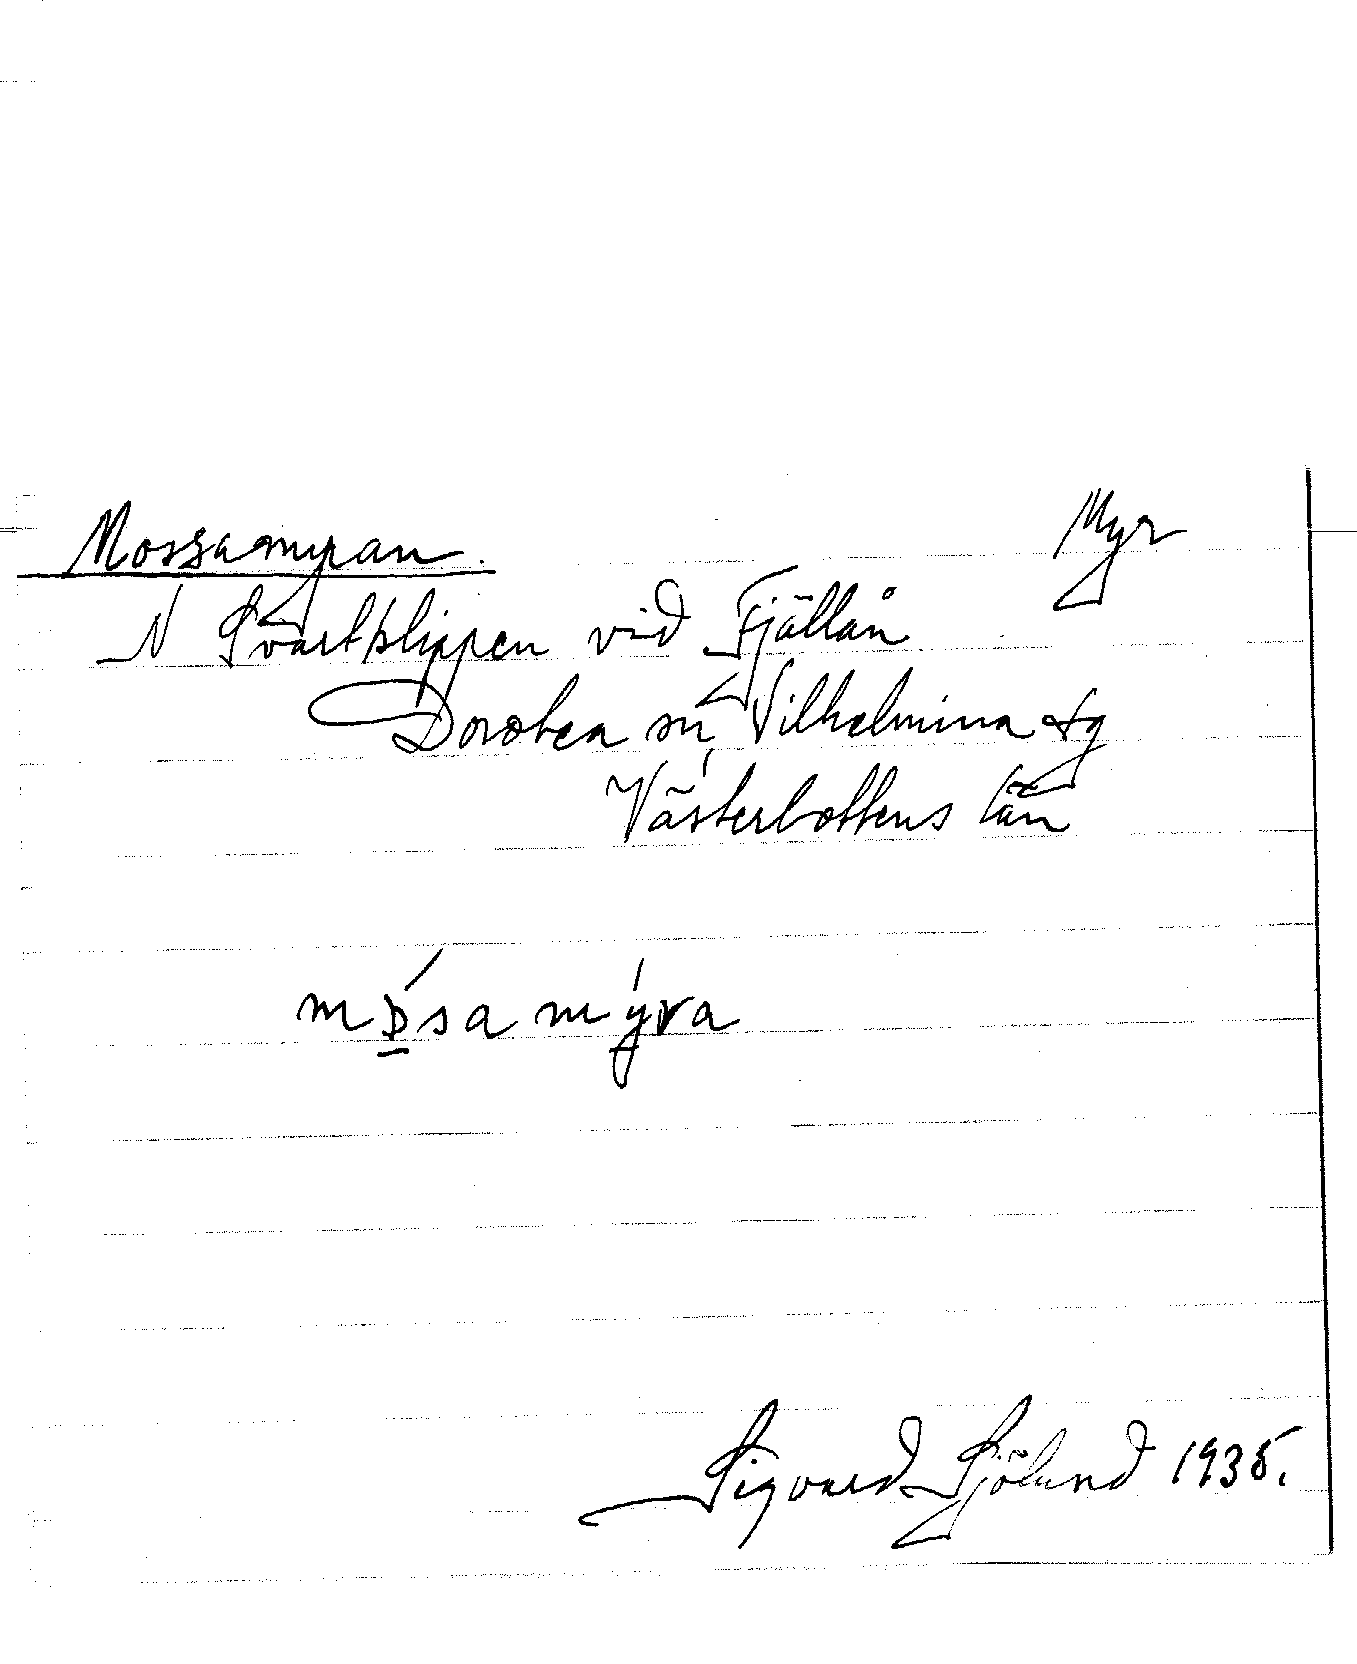 Mossamyran. Myr
N Svartklippen vid Fjällån
Dorotea sn, Vilhelmina tg
Västerbottens län
Sigvard Sjölund 1935.